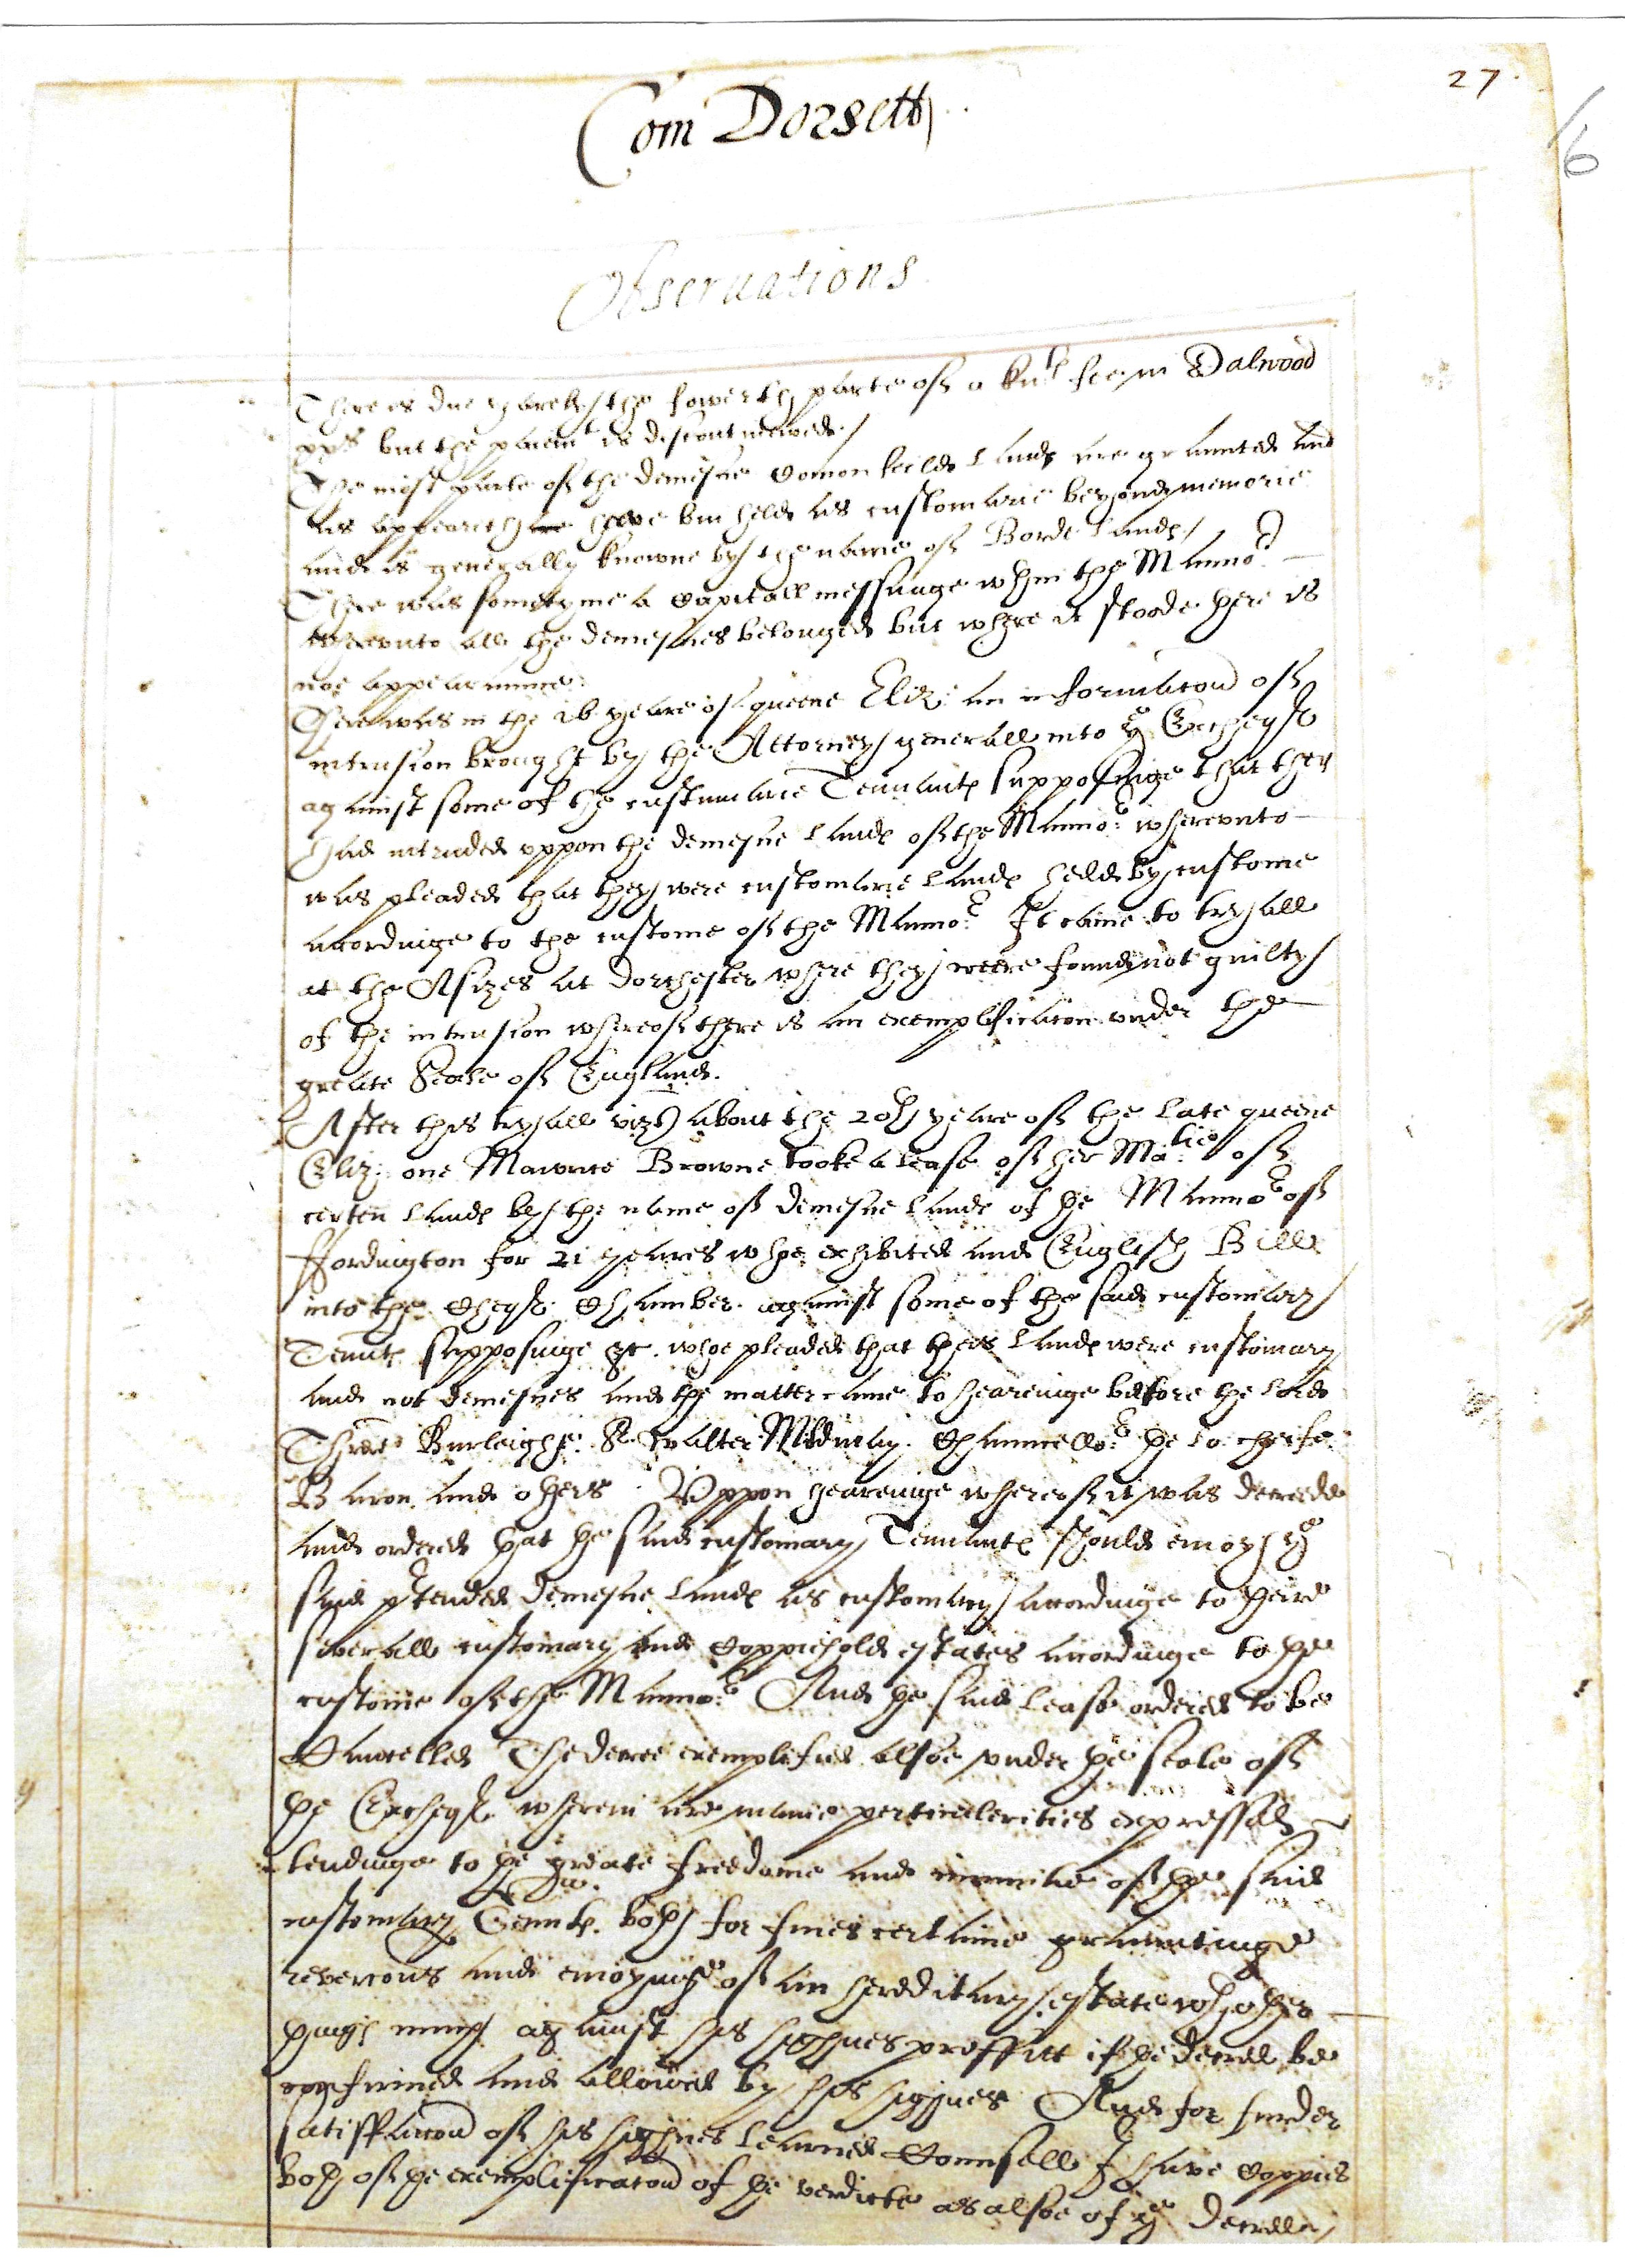 27
6
Com Dorsett
Observations
There is due yarely the fowerth parte of a knts fee in Dalwood
but the paiemt is discontinewed /
The most parte of the demesne Comon feilde Lands are graunted and
as appeareth have bin held as customarie beyond memorie
and is generally knowne by the name of Borde Lands /
There was sometyme a Capitall messuage wthin the Manno:r
wherevnto all the demesnes belonged but where it stoode there is
noe appearaunce:
There was in the 16 yeare of queene Eliz: an informacon of
intrusion brought by the Attorney generall into ye Excheqr
against some of the custumarie Tennants supposinge that they
had intruded vppon the demesne Lands of the Manno:r wherevnto
was pleaded that they were customarie Lands helld by custome
accordinge to the custome of the Manno:r It came to tryall
at the Assizes at Dorchester where they weere found not guilty
of the intrusion whereof there is an exemplificacon vnder the
greate Seale of England.
After this tryall vizt about the 20th yeare of the late queene
Eliz: one Mawrice Browne tooke a lease of her Matie: of
certen Lands by the name of demesne Lands of the Manno:r of
ffordington for 21 yeares whoe exhibited and English Bill
into the Cheqr Chamber against some of the said customary
Tennts supposinge &c. whoe pleaded that theis Lands were customary
and not demesnes and the matter came to hearinge before the Lord
Threr Burleighe. Sr Walter Mildmay. Chauncello:r the Lo: cheife
Baron and others. Vppon hearinge whereof it was decreed
and ordered that the said customary Tennants should enioy ye
said ptended demesne Lands as customary accordinge to theire
severall customary and Coppiehold estates accordinge to the
custome of the Manno:r And the said lease ordered to be
Cancelled The decree exemplified alsoe vnder the seale of
the Excheqr wherein are manie perticulerities expressed
tendinge to the greate freedome and of the said
customary Tennts. both for fines certaine grauntinge
revercons and enioyinge of an hereditary estate wth other
thinges much against his highnes proffitt if the decree be
confirmed and allowed by his highnes And for furder
satisffaccon of his highnes learned Counsell I have Coppies
both of the exemplificacon of the verdicte as alsoe of ye decree /